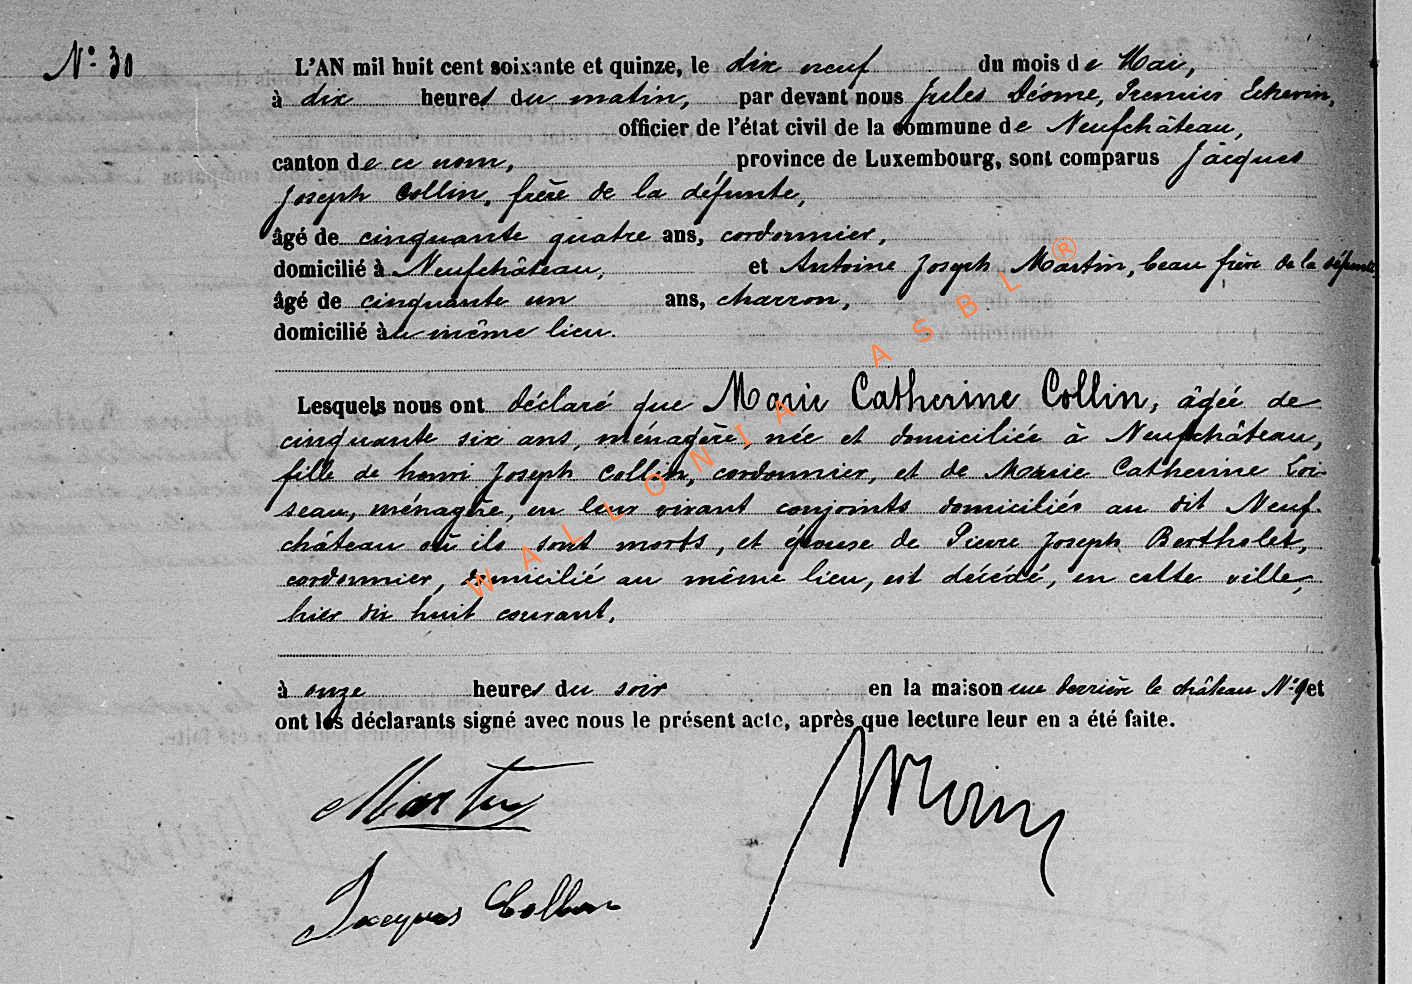 N° 30
L'AN mil huit cent soixante et quinze, le dix neuf du mois de Mai,
à dix heures du matin, par devant nous Jules Déome, Premier Echevin,
officier de l'état civil de la commune de Neufchâteau,
canton de ce nom, province de Luxembourg, sont comparus Jacques
Joseph Collin, frère de la défunte,
âgé de cinquante quatre ans, cordonnier,
domicilié à Neufchâteau, et Antoine Joseph Martin, beau frère de la défunte
âgé de cinquante un ans, charron,
domicilié au même lieu.
Lesquels nous ont déclaré que Marie Catherine Collin, âgée de
cinquante six ans, ménagère, née et domiciliée à Neufchâteau,
fille de henri Joseph Collin, cordonnier, et de Marie Catherine Loi-
seau, ménagère, en leur vivant conjoints domiciliés au dit Neuf-
château où ils sont morts, et épouse de Pierre Joseph Bertholet,
cordonnier, domicilié au même lieu, est décédé, en cette ville,
hier dix huit courant,
à onze heures du soir en la maison rue derrière le château N° 9 et
ont les déclarants signé avec nous le présent acte, après que lecture leur en a été faite.
Martin
Jacques Collin
WALLONIA ASBL ®